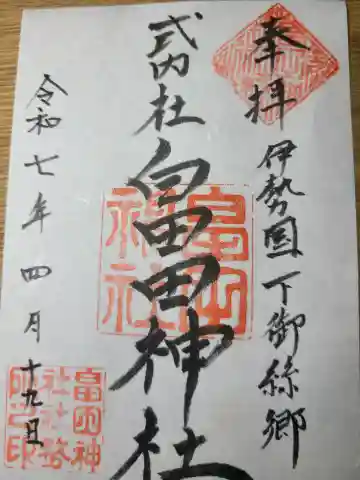 奉拝 伊勢國下御糸郷
式内社 畠田神社
令和七年四月十九日
畠田神社
畠田神社社務所之印